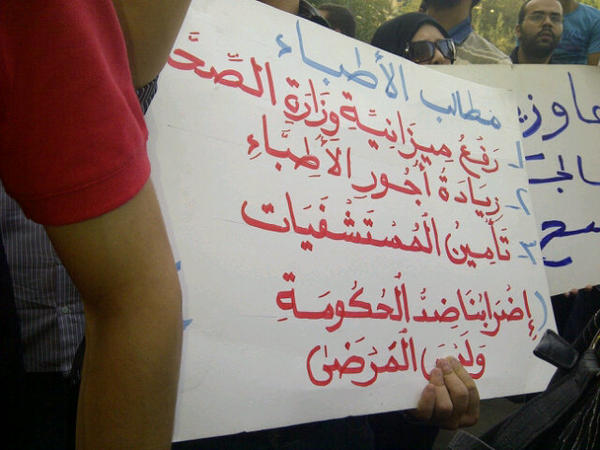 مطالب الأطباء
1- رَفْعُ مِيزَانِيَّةِ وَزَارَةِ الصِّحَّ
2- زِيَادَةُ أُجُورِ الأَطِبَّاءِ
3- تَأْمِينُ الْمُسْتَشْفَيَات
إِضْرَابُنَا ضِدُّ الْحُكُومَةِ
وَلَيْسَ الْمَرْضَى
عاوز